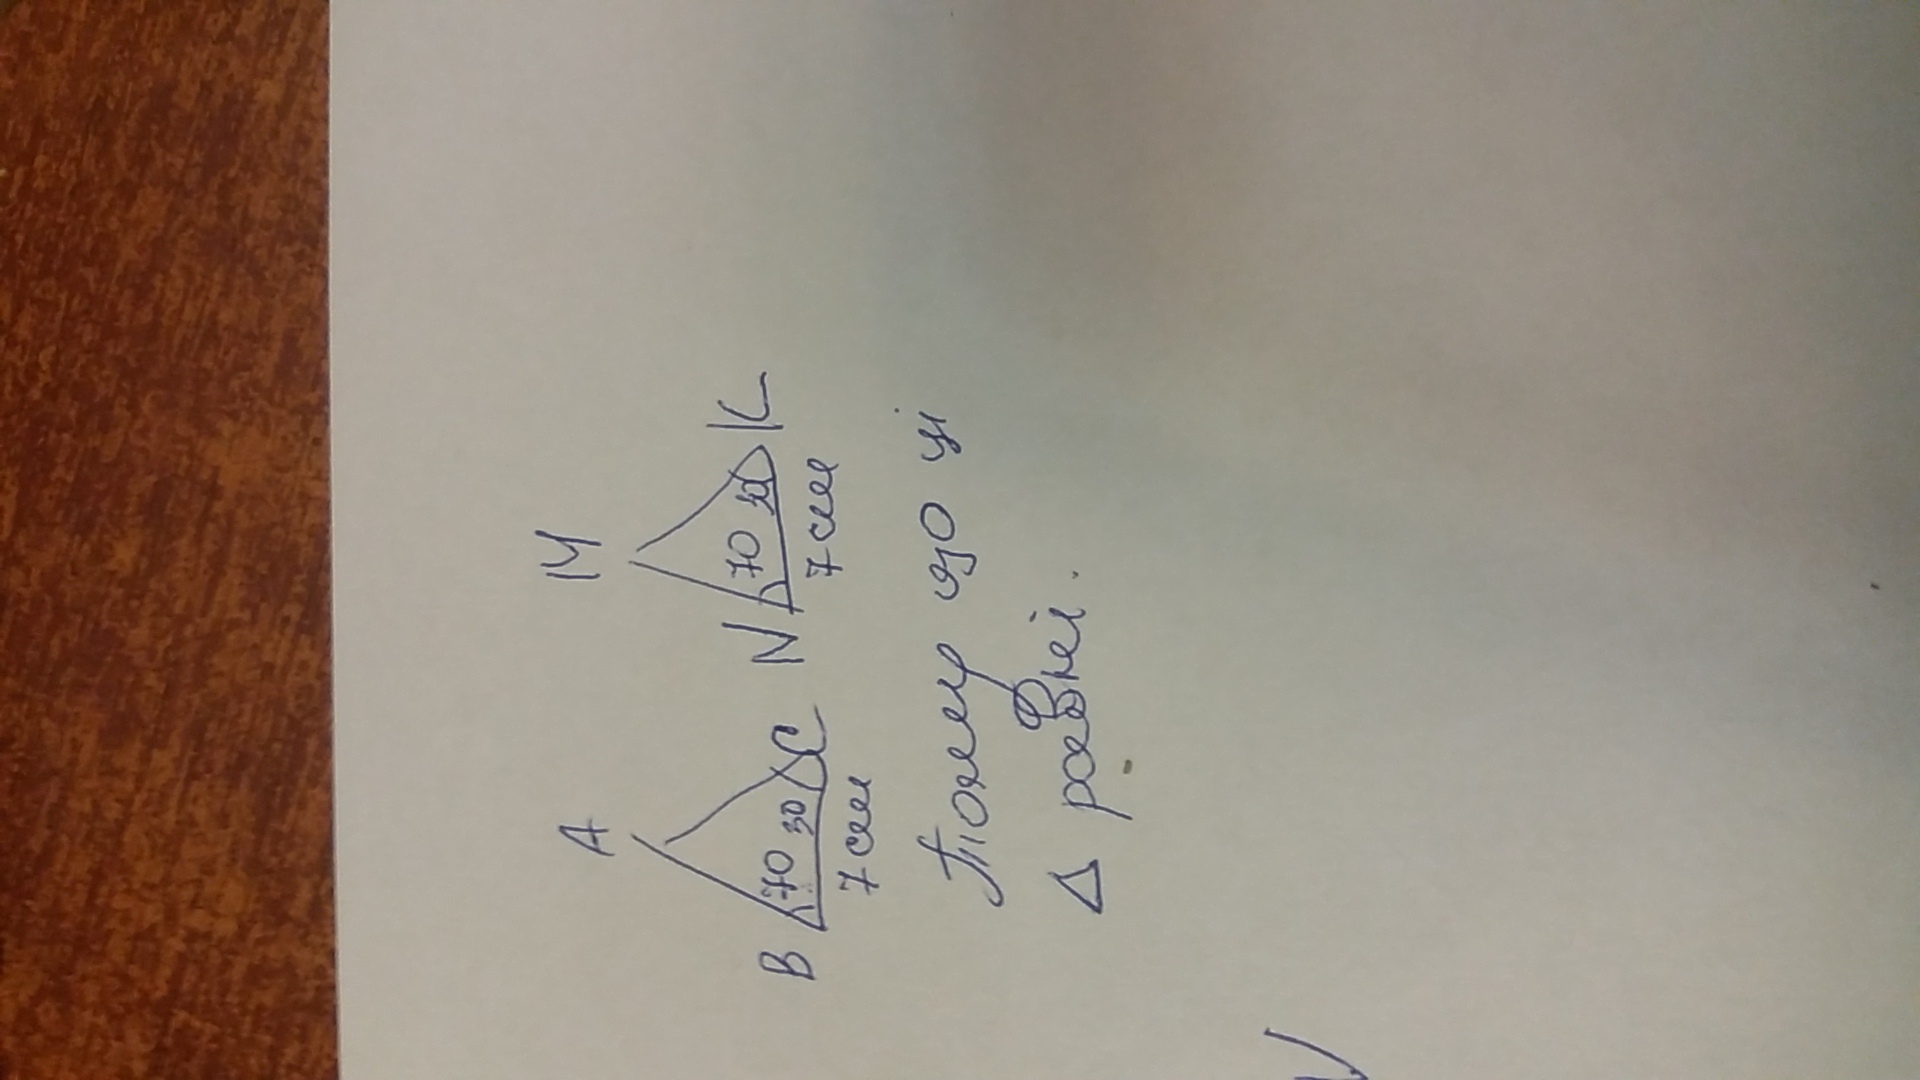 A M
70 30 70 30
B C N K
7 см 7 см
Тому що ці
Δ рівні.